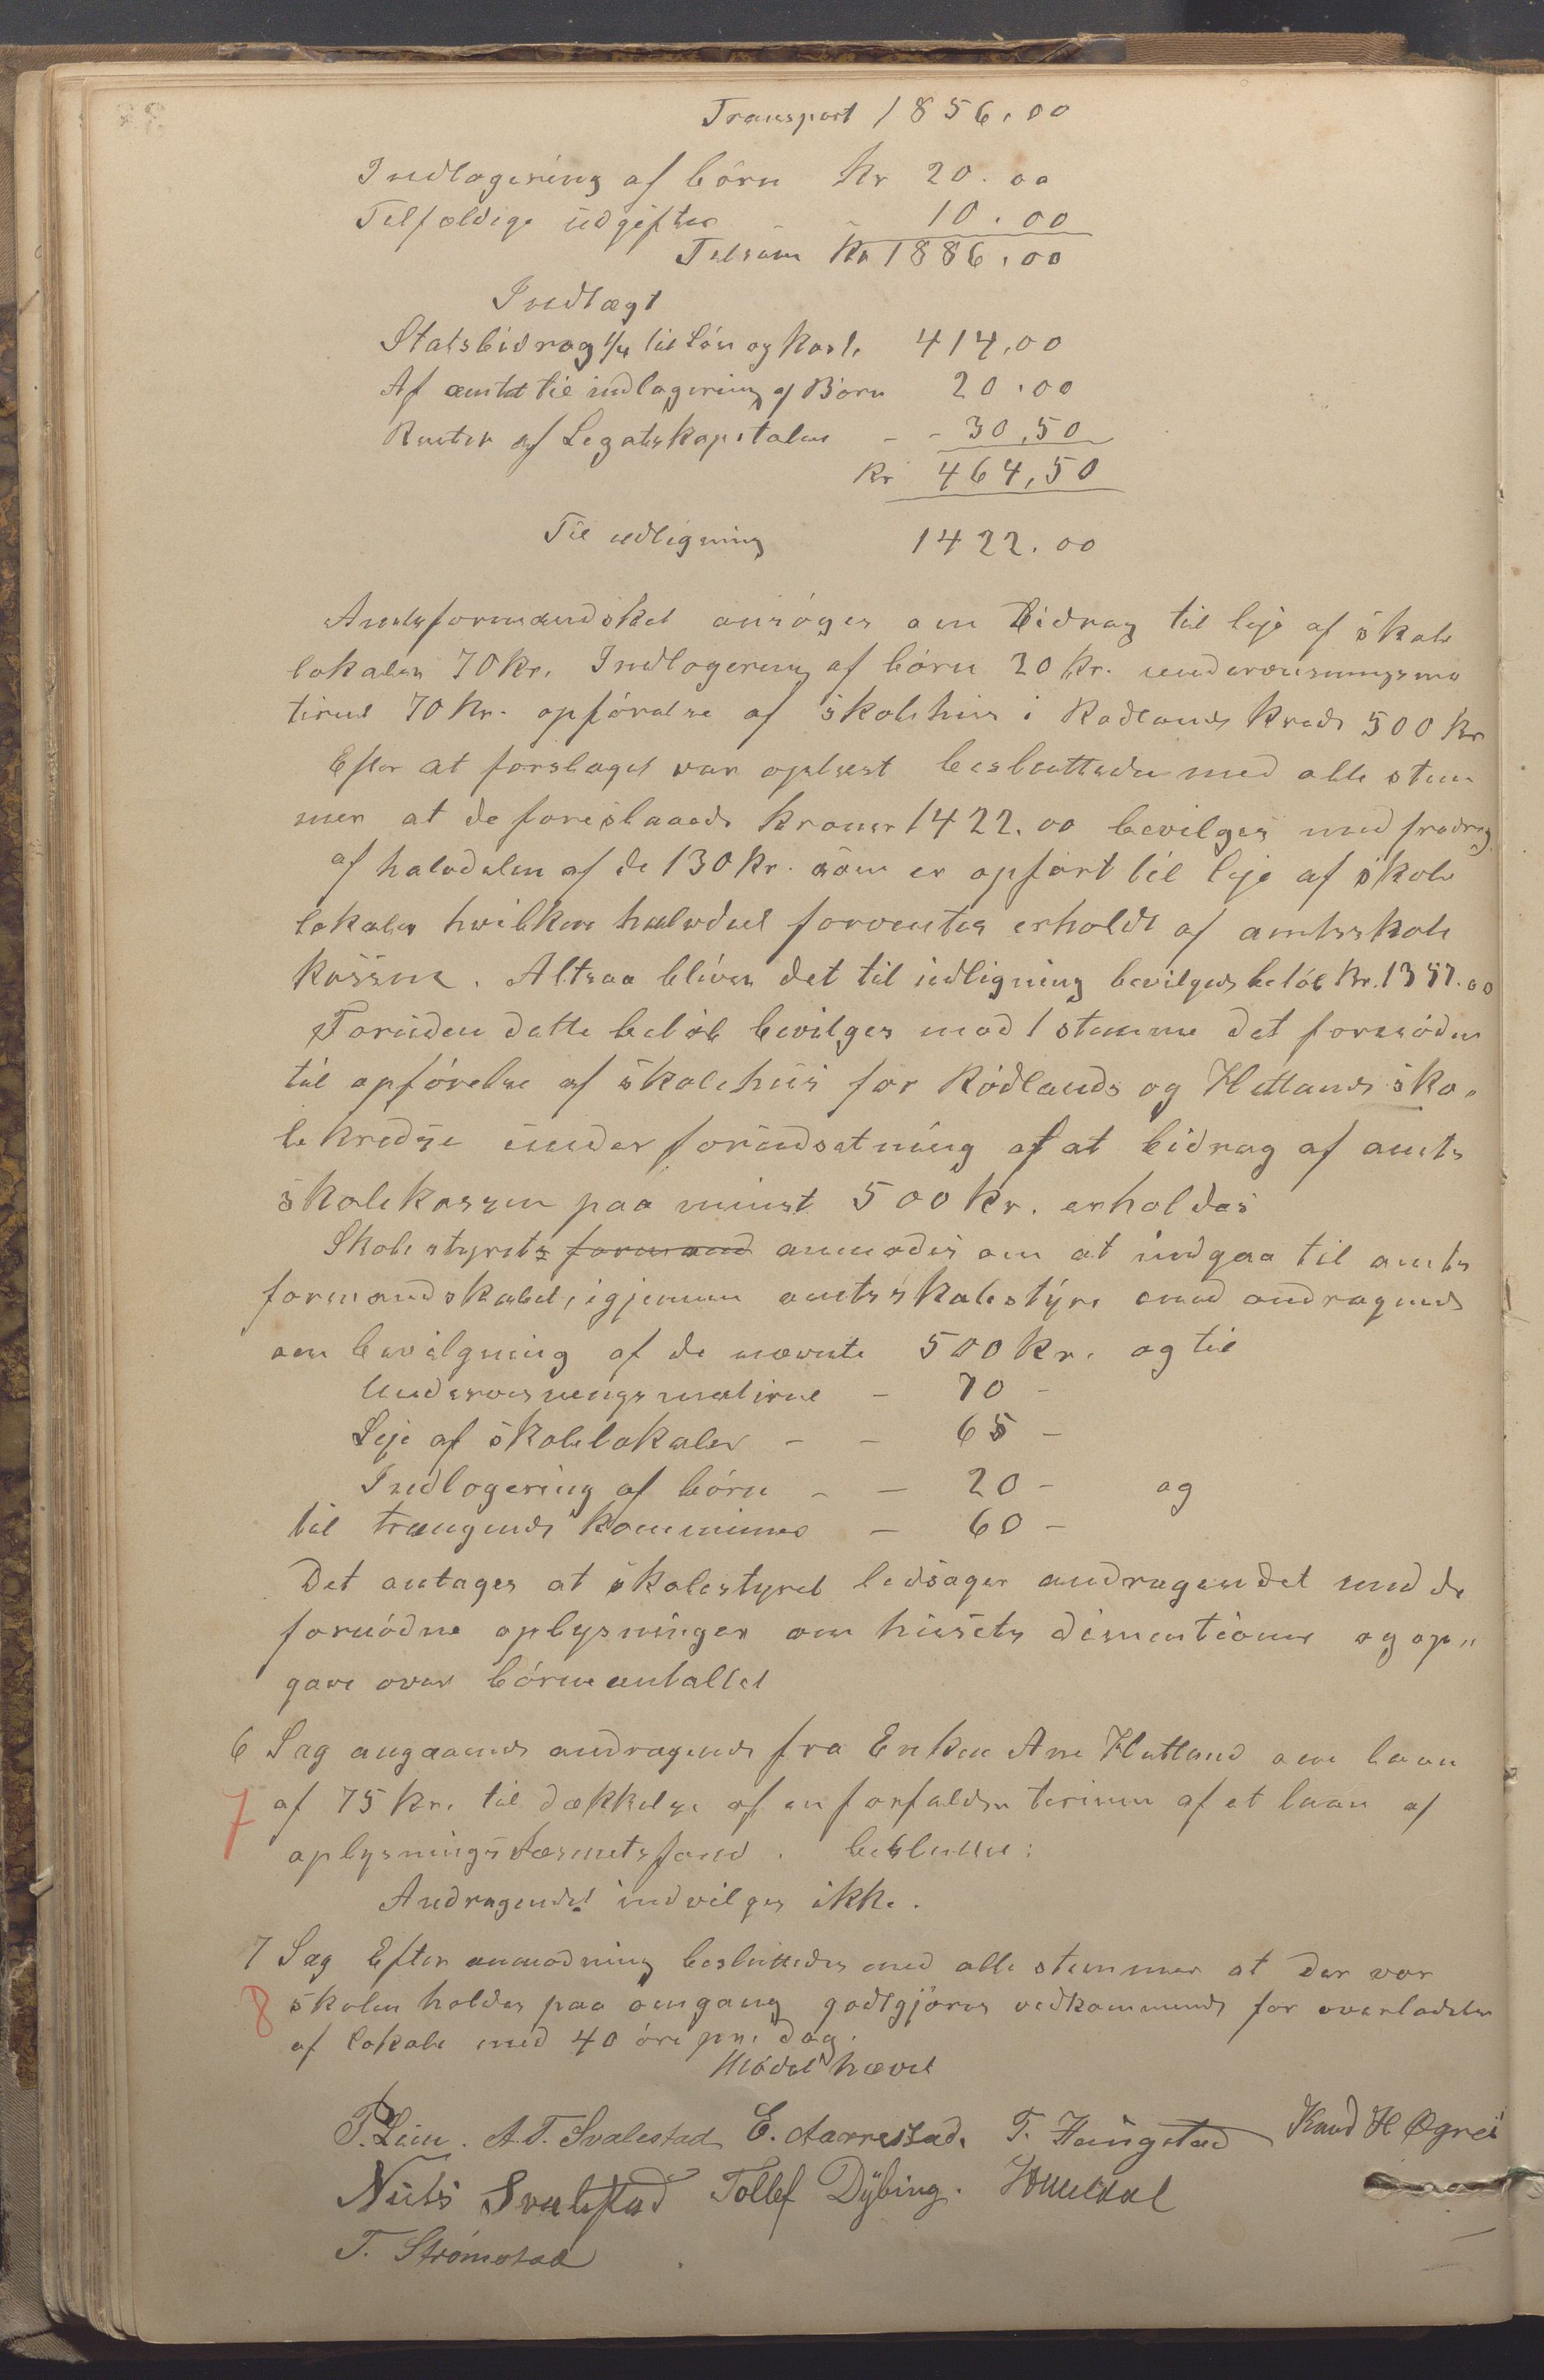 Transport 1856.00
Indlogering af börn Kr 20.00
Tilfældige udgifter - 10.00
Tilsam Kr 1886.00
Indtægt
Statsbidrag 1/4 til Lön og Kost. 414,00
Af amtet til indlogering af Börn 20.00
Renter af Legatskapitaler - - 30,50
Kr 464,50
Til udligning 1422.00
Amtsformandskabet ansöges om Bidrag til leje af skole
lokaler 70 Kr. Indlogering af börn 20 Kr. undervisningsma
tiriel 70 Kr. opförelse af skolehus i Rødlands Kreds 500 Kr
Efter at forslaget var oplæst besluttedes med alle stem
mer at de foreslaaede Kroner 1422.00 bevilges med fradrag
af halvdelen af de 130 Kr. som er opført til leje af skole
lokaler hvilken halvdel forventes erholdt af amtsskole
kassen. Altsaa bliver det til udligning bevilgede beløb Kr. 1357.00
Foruden dette beløb bevilges mod 1 stemme det fornödne
til opförelse af skolehus for Rödlands og Hetlands sko„
lekredse under forudsætning af at bidrag af amts
skolekassen paa minst 500 Kr. erholdes
Skolestyrets formand anmodes om at indgaa til amts
formandskabet, igjennem amtsskolestyre med andragende
om bevilgning af de nævnte 500 Kr. og til
Undervisningsmatiriel - 70 -
Leje af skolelokaler - - 65 -
Indlogering af börn - - 20 - og
til trængende kommuner - 60 -
Det antages at skolestyret ledsager andragendet med de
fornödne oplysninger om husets dimentioner og op„
gave over börneantallet
6 Sag angaaende andragende fra Enken Ane Hetland om laan
7 af 75 Kr. til dækkelse af en forfalden termin af et laan af
oplysningsvæsenets fond. beslutter:
Andragendet indvilges ikke.
7 Sag Efter anmodning besluttedes med alle stemmer at der vor
8 skolen holdes paa omgang godtgjöres vedkommende for overladelse
af lokale med 40 öre pr. dag.
Mödet hævet
P. Lim. A. T. Svalestad E. Aarrestad. T. Haugstad Knud H Øgrei
Niels Svalestad Tollef Dÿbing.
T. Strömstad